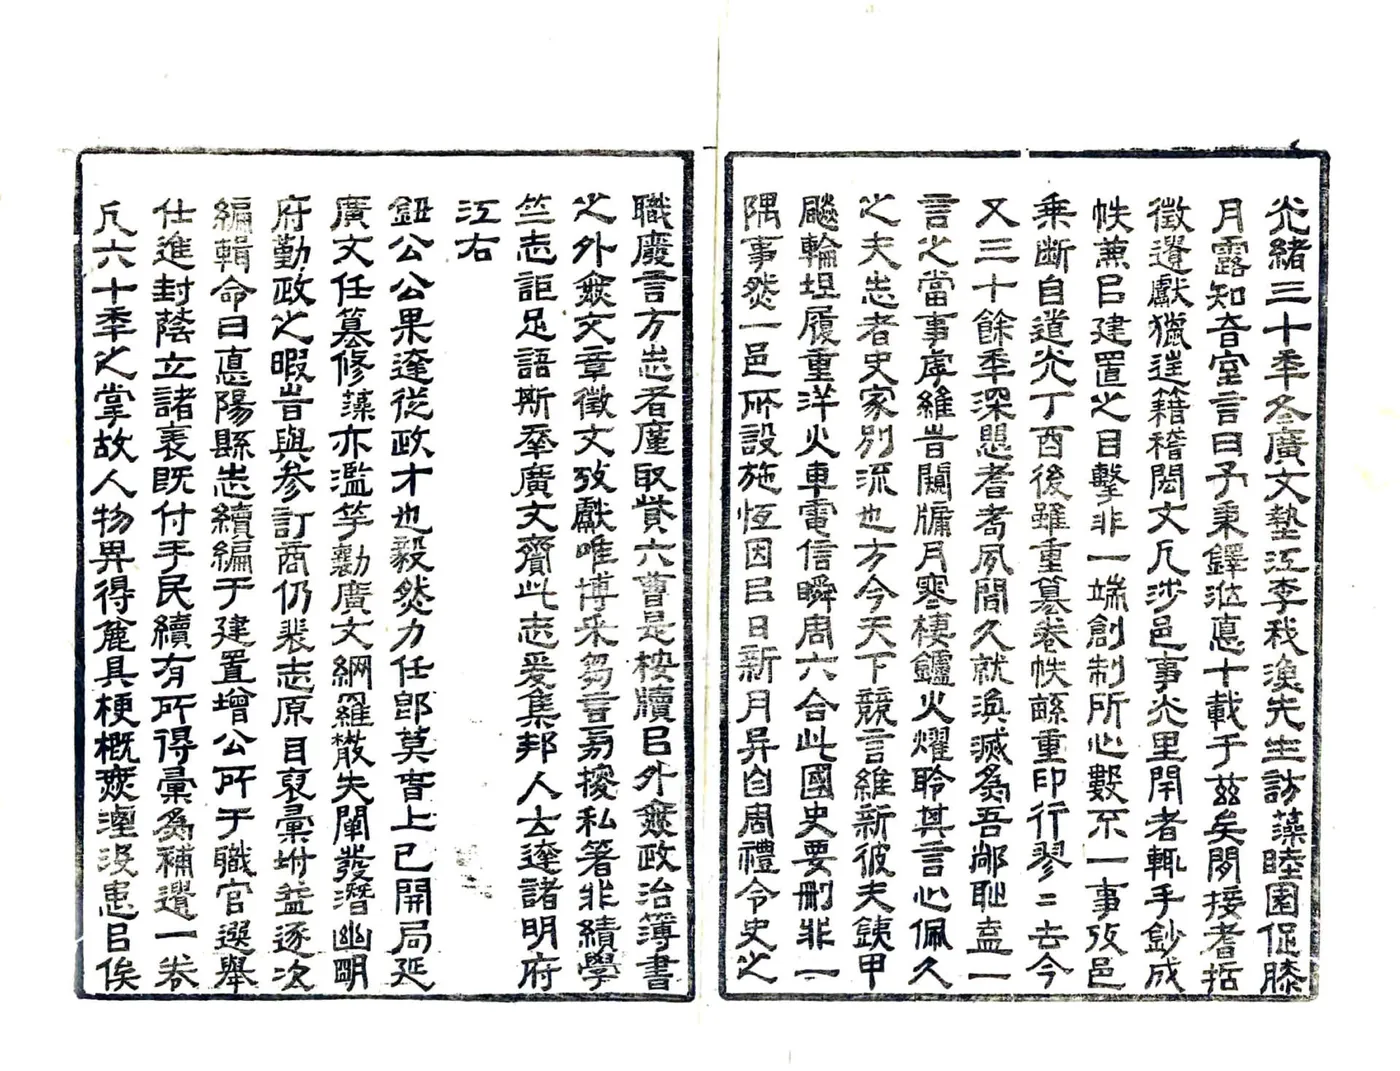 光緒三十年冬廣文墊江李我漁先生訪藻睦園促膝
月露知音室言曰予秉鐸涖悳十載于茲矣閒接耆括
徵遺獻獵逞籍稽閎文凡涉邑事光里閈者輒手鈔成
帙兼㠯建置之目擊非一端創制所心數不一事攷邑
乘斷自道光丁酉後雖重纂卷帙繇重印行寥二去今
又三十餘年深恩耆耇夙聞久就渙滅為吾鄰恥盍一
言之當事虖維旹闚牖月寒棲鑪火燿聆其言心佩久
之夫志者史家別流也方今天下競言維新彼夫鐵甲
飈輪坦履重洋火車電信瞬周六合此國史要刪非一
隅事然一邑所設施恆因㠯日新月异自周禮令史之
職廢言方志者廑取贊六曹是桉牘㠯外無政治簿書
之外無文章徵文攷獻唯博采芻言易擾私箸非績學
竺志詎足語斯羣廣文齎此志爰集邦人士達諸明府
江右
鈕公公果達從政才也毅然力任卽莫春上巳開局延
廣文任纂修藻亦濫竽勷廣文綱羅散失闡發潛幽朙
府勤政之暇旹與參訂商仍裴志原目裒彙坿益逐次
編輯命曰悳陽縣志續編于建置增公所于職官選舉
仕進封蔭立諸表既付手民續有所得彙為補遺一卷
凡六十年之掌故人物畀得麄具梗概庶湮沒患㠯俟